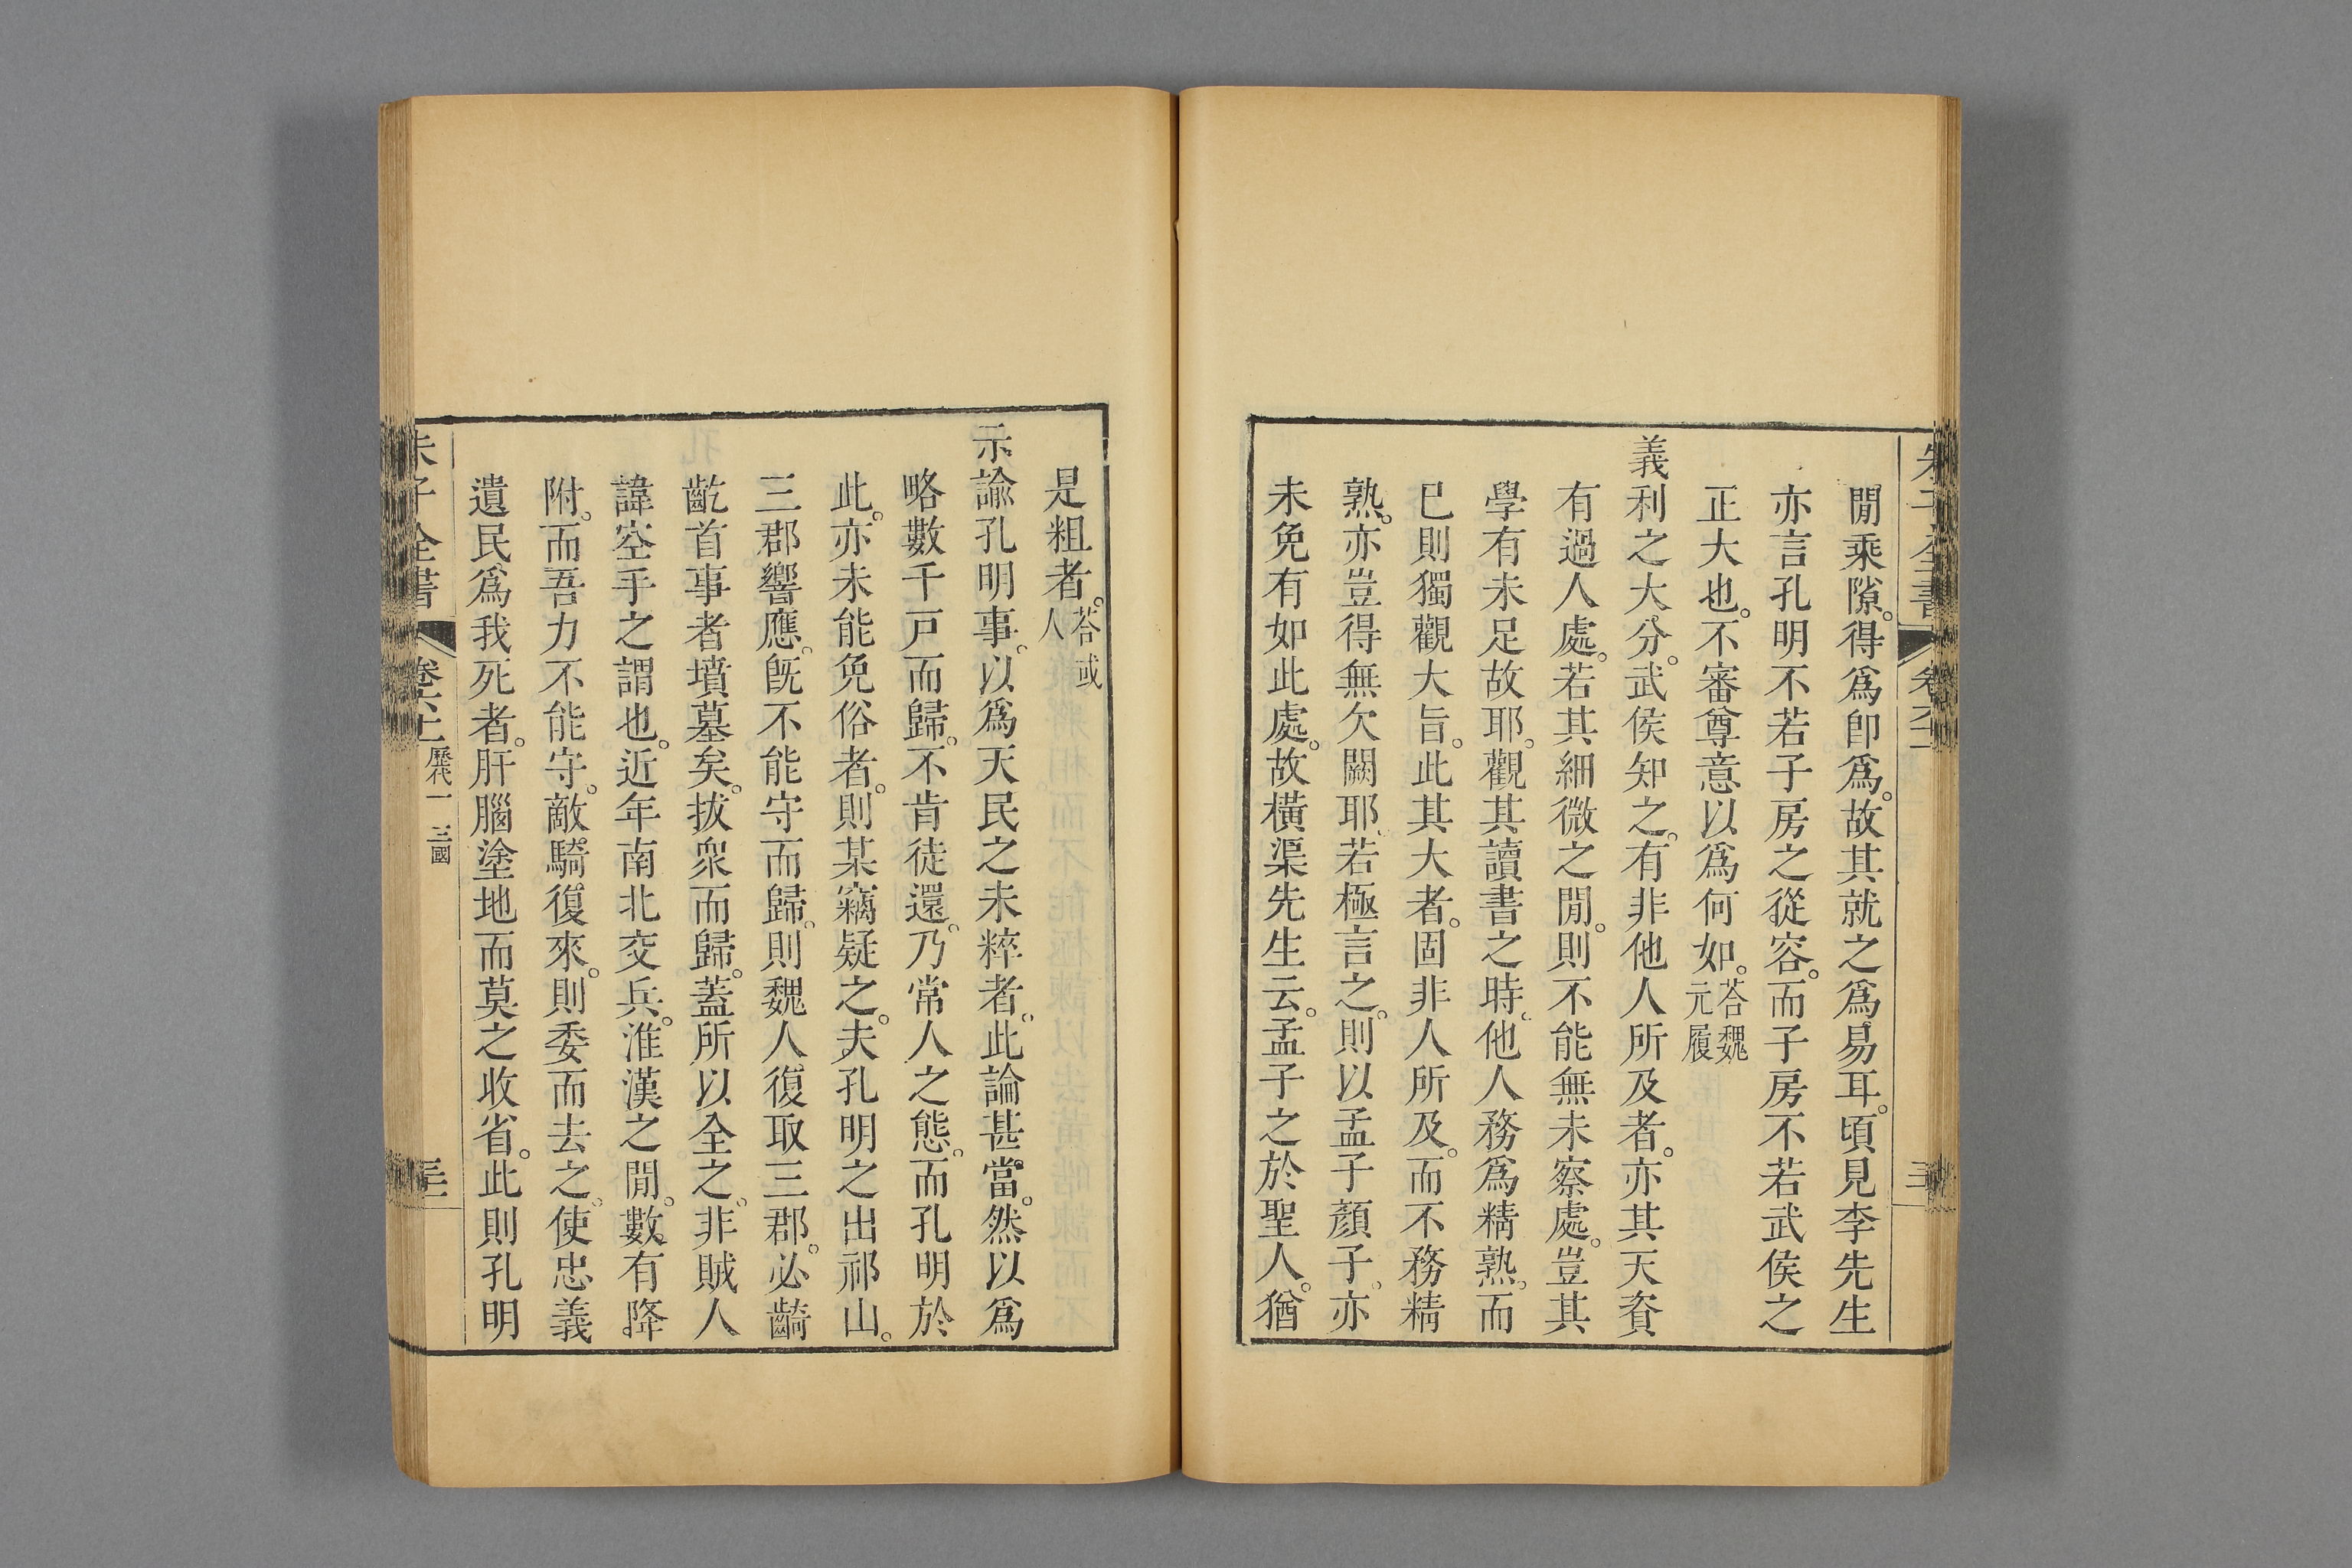 閒乘隙。得爲卽爲。故其就之爲易耳。頃見李先生
亦言孔明不若子房之從容。而子房不若武侯之
正大也。不審尊意以爲何如。荅魏元履
義利之大分。武侯知之。有非他人所及者。亦其天資
有過人處。若其細微之閒。則不能無未察處。豈其
學有未足故耶。觀其讀書之時。他人務爲精熟。而
已則獨觀大旨。此其大者。固非人所及。而不務精
熟。亦豈得無欠闕耶。若極言之。則以孟子顏子。亦
未免有如此處。故橫渠先生云。孟子之於聖人。猶
是粗者。荅或人
示諭孔明事。以爲天民之未粹者。此論甚當。然以爲
略數千戸而歸。不肯徒還。乃常人之態。而孔明於
此。亦未能免俗者。則某竊疑之。夫孔明之出祁山。
三郡響應。旣不能守而歸。則魏人復取三郡。必齮
齕首事者墳墓矣。拔衆而歸。蓋所以全之。非賊人
諱空手之謂也。近年南北交兵。淮漢之閒。數有降
附。而吾力不能守。敵騎復來。則委而去之。使忠義
遺民。爲我死者。肝腦塗地而莫之收省。此則孔明
朱子全書 歷代一 三國